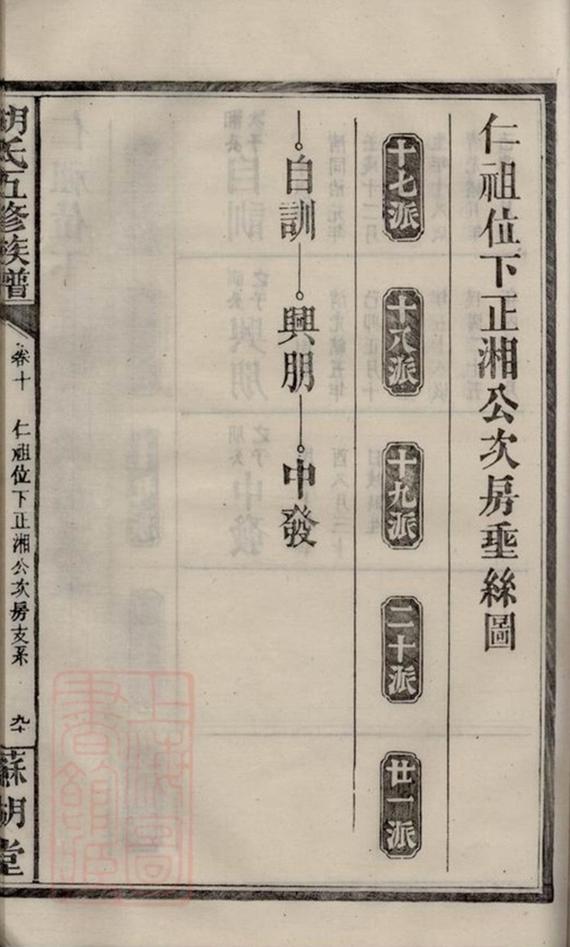 仁祖位下正湘公次房垂絲圖
十七派
十八派
十九派
二十派
廿一派
自訓
興朋
中發
胡氏五修族譜
卷十
仁祖位下正湘公次房支系
九十
蘇胡堂